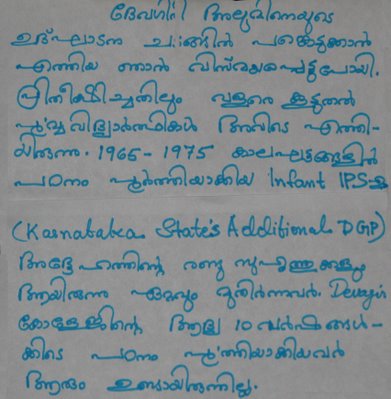 ദേവഗിരി അലൂമിനെയുടെ
ഉദ്ഘാടന ചടങ്ങിൽ പങ്കെടുക്കാൻ
എത്തിയ ഞാൻ വിസ്മയപ്പെട്ടുപോയി.
പ്രതീക്ഷിച്ചതിലും വളരെ കൂടുതൽ
പൂർവ്വവിദ്യാർത്ഥികൾ അവിടെ എത്തി-
യിരുന്നു. 1965-1975 കാലഘട്ടങ്ങളിൽ
പഠനം പൂർത്തിയാക്കിയ Infant IPS-ഉം
(Karnataka State's Additional DGP)
അദ്ദേഹത്തിന്റെ രണ്ടു സുഹൃത്തുക്കളും
ആയിരുന്നു ഏറ്റവും മുതിർന്നവർ. Devagiri
കോളേജിന്റെ ആദ്യ 10 വർഷങ്ങൾ-
ക്കിടെ പഠനം പൂർത്തിയാക്കിയവർ
ആരും ഉണ്ടായിരുന്നില്ല.